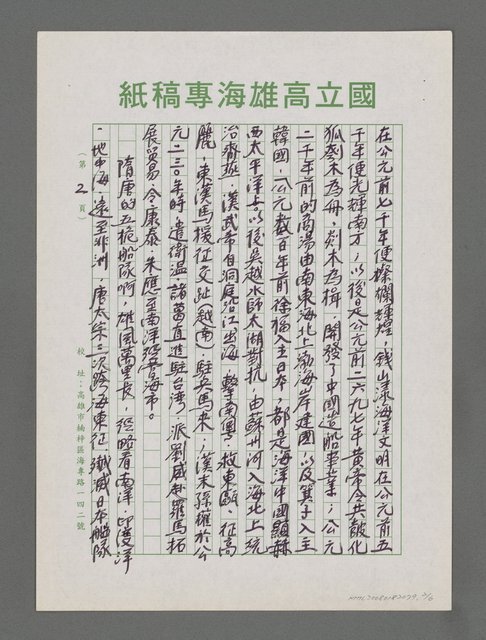 國立高雄海專稿紙
在公元前七千年便燦爛輝煌，錢山漾海洋文明在公元前五
千年便光輝南方，以後是公元前二六九七年黃帝令共鼓化
狐刳木為舟，剡木為楫，開發了中國造船事業；公元
二千年前的商湯由南東海北上渤海岸建國，以及箕子入主
韓國，公元數百年前徐福入主日本，都是海洋中國顯赫
西太平洋去。以後吳越水師太湖對抗，由蘇州河入海北上統
治齊魯，漢武帝自洞庭沿江出海，擊南粵，救東甌、征高
麗，東漢馬援征交趾（越南），駐兵馬來；漢末孫權於公
元二三〇年時，遣衛温，諸葛直進駐台湾，派劉威赴羅馬拓
展貿易，令康泰、朱應至南洋經營海市。
隋唐的五桅船隊啊，雄風萬里長，經略看南洋，印度洋
，地中海，遠至非洲，唐太宗三次跨海東征，殲滅日本船隊
（第2頁）
校址：高雄市楠梓區海專路一四二號
HML20080182079, 2/6